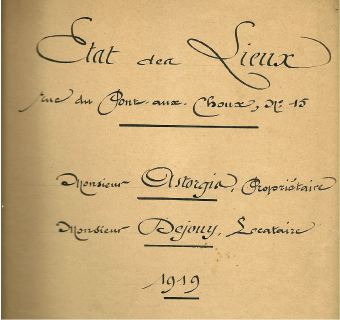 Etat des Lieux
rue du Pont-aux-Choux, No 15
Monsieur Astorgis, Propriétaire
Monsieur Dejouy, Locataire
1919